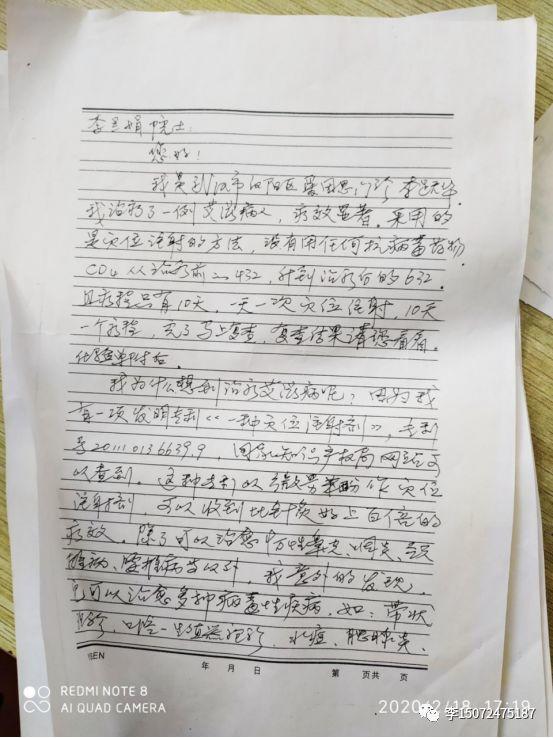 李兰娟院士：
您好！
我是武汉市汉阳区爱因思门诊李跃华。
我治疗了一例艾滋病人，疗效显著。采用的
是穴位注射的方法，没有用任何抗病毒药物。
CD4从治疗前的432，升到治疗后的632.
且疗程只有10天，一天一次穴位注射，10天
一个疗程，完了马上复查，复查结果请您看看。
化验单附后。
我为什么想到治疗艾滋病呢？因为我
有一项发明专利《一种穴位注射剂》，专利
号201110136639.9，国家知识产权局网站可
以查到。这种专利以微量苯酚作穴位
注射剂，可以收到比针灸好上百倍的
疗效，除了可以治愈慢性鼻炎、咽炎、颈
椎病、腰椎病等以外，我意外的发现，
它可以治愈多种病毒性疾病，如：带状
疱疹、口唇生殖器疱疹、水痘、腮腺炎、
年 月 日 第 页共 页
REDMI NOTE 8
AI QUAD CAMERA
2020/2/18 17:19
李15072475187